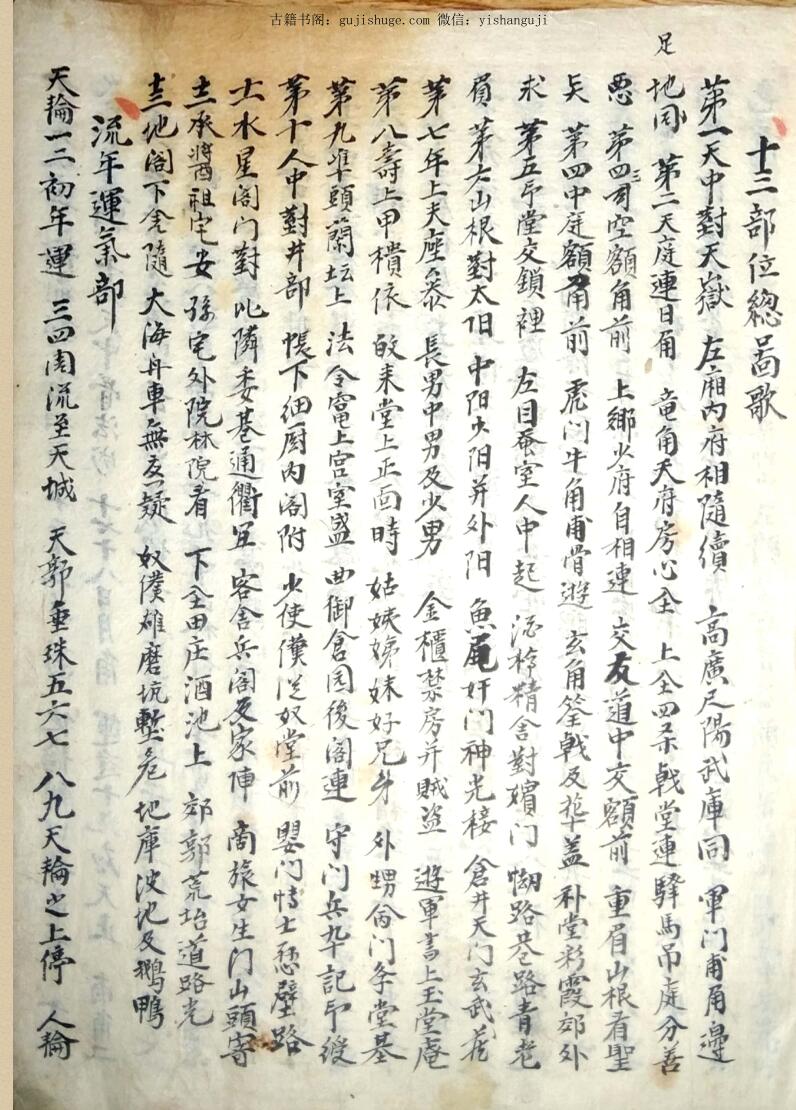 古籍书阁：gujishuge.com 微信：yishanguji
十三部位總圖歌
第一天中對天嶽 左廂內府相隨續 高廣尺陽武庫同 軍门甫角邊
足
地同 第二天庭連日角 竜角天府房心全 上全四杀戟堂連 驛馬吊庭分善
悪 第四三司空額角前 上鄉少府自相連 交友道中交額前 重眉山根看聖
矣 第四中庭額角前 虎门牛角甫骨遊 玄角 戟及華盖 补堂彩霞郊外
求 第五印堂交鎖裡 左目蚕室人中起 酒樽精舍對嬪门 路巷路青老
眉 第六山根對太阳 中阳少阳并外阳 魚尾奸门神光接 倉井天门玄武
第七年上夫座 長男中男及少男 金櫃禁房并賊盗 遊軍書上玉堂庵
第八壽上甲樻依 堂上正面時 姑姨姊妹好兄弟 外甥 门 堂基
第九凖頭蘭坛上 法令竃上宫室盛 典御倉园後阁連 守门兵卒記印绶
第十人中對井部 帳下细厨内阁附 少使僕從奴堂前 嬰门博士 壁路
土水星阁门對 比隣委巷通衢 客舍兵阁及家陣 商旅女生门山頭寄
土承漿祖宅安 孫宅外院林院看 下全田庄酒池上 郊郭荒坮道路光
十三地阁下舍隨 大海舟車無疑 奴僕雄磨坑塹危 地庫波地及鵝鴨
流年運氣部
天輪一二初年運 三四周流至天城 天郭垂珠五六七 八九天輪之上停 人輪